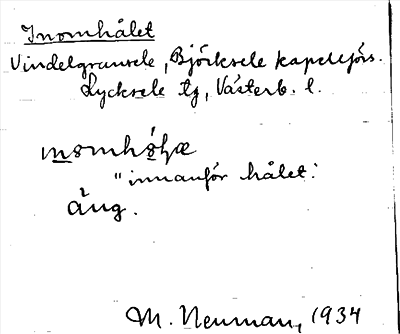 Inomhålet
Vindelgransele, Björksele kapellförs.
Lycksele tg, Västerb. l.
"innanför hålet:
äng.
M. Neuman, 1934